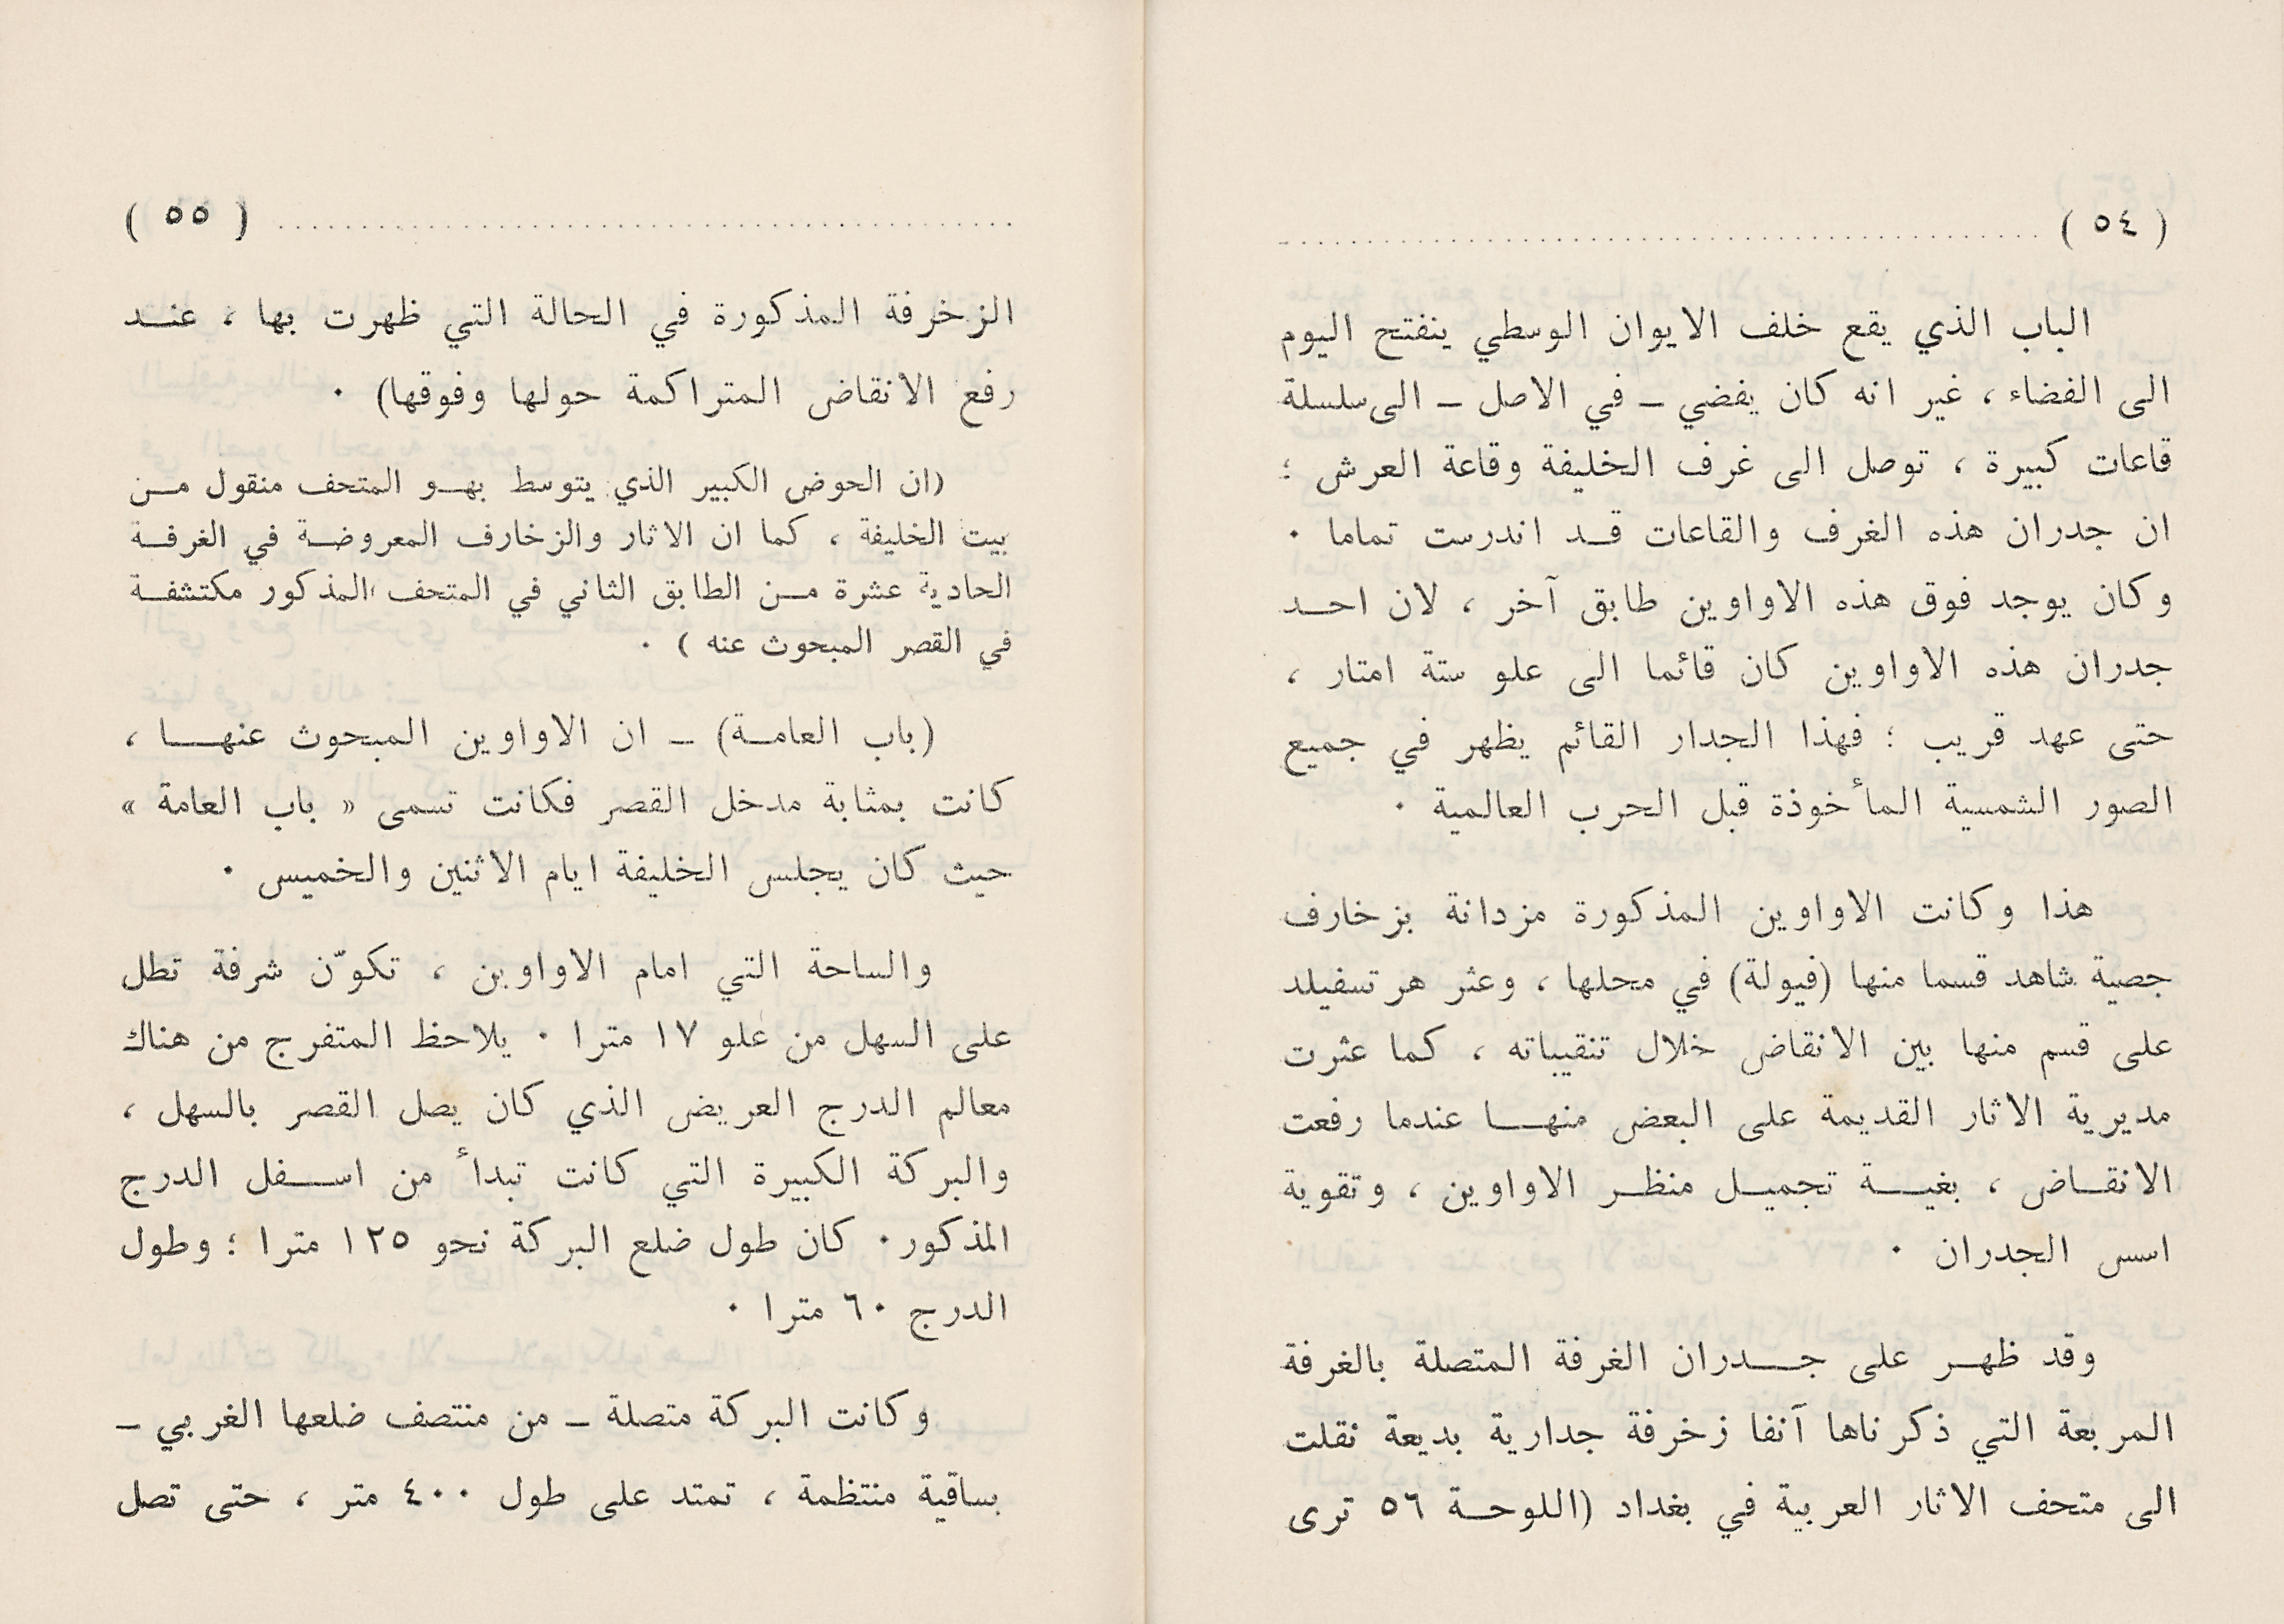 ( ٥٤ )
الباب الذي يقع خلف الايوان الوسطي ينفتح اليوم
الى الفضاء ، غير انه كان يفضي ـ في الاصل ـ الى سلسلة
قاعات كبيرة ، توصل الى غرف الخليفة وقاعة العرش ؛
ان جدران هذه الغرف والقاعات قد اندرست تماما ٠
وكان يوجد فوق هذه الاواوين طابق آخر ، لان احد
جدران هذه الاواوين كان قائما الى علو ستة امتار ،
حتى عهد قريب ؛ فهذا الجدار القائم يظهر في جميع
الصور الشمسية المأخوذة قبل الحرب العالمية ٠
هذا وكانت الاواوين المذكورة مزدانة بزخارف
جصية شاهد قسما منها (فيولة) في محلها ، وعثر هرتسفيلد
على قسم منها بين الانقاض خلال تنقيباته ، كما عثرت
مديرية الاثار القديمة على البعض منها عندما رفعت
الانقاض ، بغية تجميل منظر الاواوين ، وتقوية
اسس الجدران ٠
وقد ظهر على جدران الغرفة المتصلة بالغرفة
المربعة التي ذكرناها آنفا زخرفة جدارية بديعة نقلت
الى متحف الاثار العربية في بغداد (اللوحة ٥٦ ترى
( ٥٥ )
الزخرفة المذكورة في الحالة التي ظهرت بها ، عند
رفع الانقاض المتراكمة حولها وفوقها) ٠
(ان الحوض الكبير الذي يتوسط بهو المتحف منقول من
بيت الخليفة ، كما ان الاثار والزخارف المعروضة في الغرفة
الحادية عشرة من الطابق الثاني في المتحف المذكور مكتشفة
في القصر المبحوث عنه ) ٠
(باب العامة) ـ ان الاواوين المبحوث عنها ،
كانت بمثابة مدخل القصر فكانت تسمى « باب العامة »
حيث كان يجلس الخليفة ايام الاثنين والخميس ٠
والساحة التي امام الاواوين ، تكوّن شرفة تطل
على السهل من علو ١٧ مترا ٠ يلاحظ المتفرج من هناك
معالم الدرج العريض الذي كان يصل القصر بالسهل ،
والبركة الكبيرة التي كانت تبدأ من اسفل الدرج
المذكور ٠ كان طول ضلع البركة نحو ١٢٥ مترا ؛ وطول
الدرج ٦٠ مترا ٠
وكانت البركة متصلة ـ من منتصف ضلعها الغربي ـ
بساقية منتظمة ، تمتد على طول ٤٠٠ متر ، حتى تصل